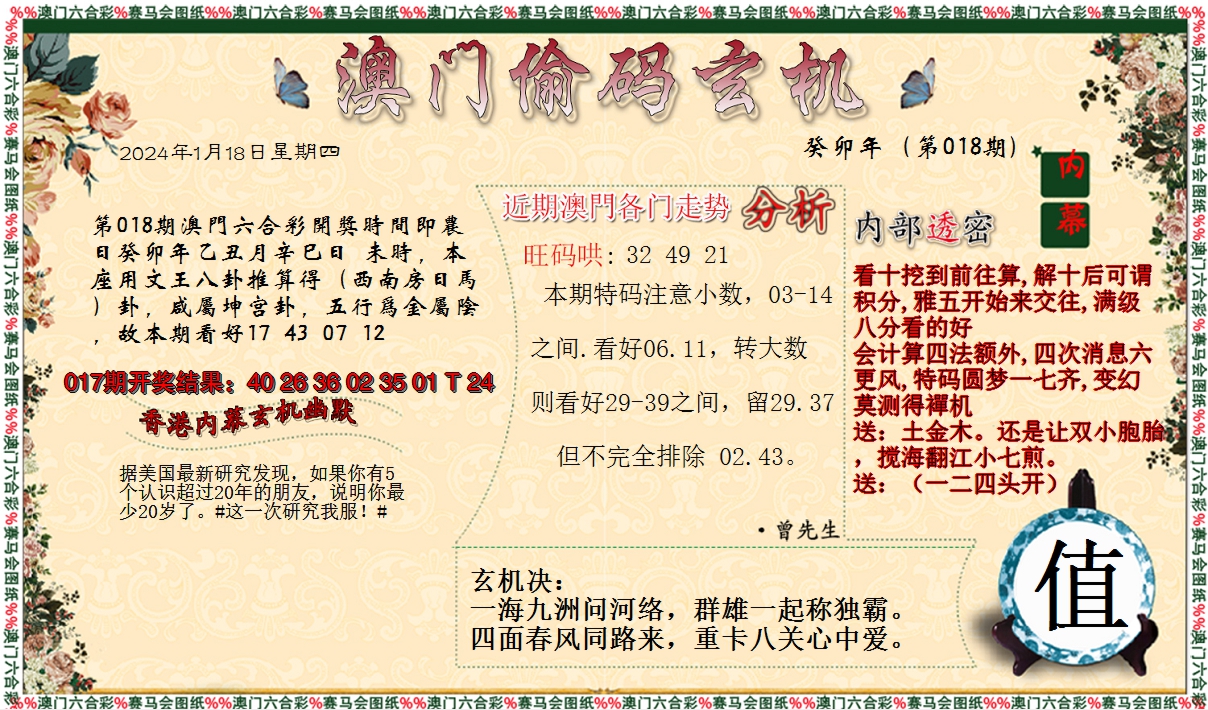 %%澳门六合彩%赛马会图纸%%澳门六合彩%赛马会图纸%%澳门六合彩%赛马会图纸%%澳门六合彩%赛马会图纸%%澳门六合彩%赛马会图纸%%澳门六合彩%赛马会图纸%%
澳门偷码玄机
2024年1月18日星期四
癸卯年（第018期）
内幕
第018期澳門六合彩開獎時間即農
日癸卯年乙丑月辛巳日 未時，本
座用文王八卦推算得（西南房日馬
）卦，咸屬坤宫卦，五行爲金屬陰
，故本期看好17 43 07 12
017期开奖结果：40 26 36 02 35 01 T 24
香港内幕玄机幽默
据美国最新研究发现，如果你有5
个认识超过20年的朋友，说明你最
少20岁了。#这一次研究我服！#
近期澳門各门走势 分析
旺码哄: 32 49 21
本期特码注意小数，03-14
之间.看好06.11，转大数
则看好29-39之间，留29.37
但不完全排除 02.43。
·曾先生
内部透密
看十挖到前往算,解十后可谓
积分,雅五开始来交往,满级
八分看的好
会计算四法额外,四次消息六
更风,特码圆梦一七齐,变幻
莫测得襌机
送：土金木。还是让双小胞胎
，搅海翻江小七煎。
送：（一二四头开）
玄机决：
一海九洲问河络，群雄一起称独霸。
四面春风同路来，重卡八关心中爱。
值
%%澳门六合彩%赛马会图纸%%澳门六合彩%赛马会图纸%%澳门六合彩%赛马会图纸%%澳门六合彩%赛马会图纸%%澳门六合彩%赛马会图纸%%澳门六合彩%赛马会图纸%%